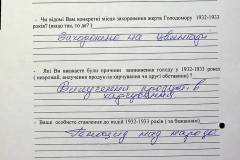 - Чи відомі Вам конкретні місця захоронення жертв Голодомору 1932-1933
років? (якщо так, то де? )
Захоронено на цвинтарі
- Які на Ваш були причини виникнення голоду у 1932-1933 роках
( неврожай, вилучення продуктів харчування чи другі обставини)?
Вилучення продуктів
харчування
- Ваше особисте ставлення до подій 1932-1933 років ( за бажанням)
Геноцид над народом